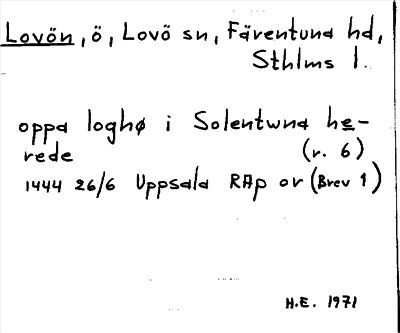 Lovön, ö, Lovö sn, Färentuna hd,
Sthlms l.
oppa loghø i Solentwna he-
rede (r. 6)
1444 26/6 Uppsala RAp or (Brev 1)
H.E. 1971